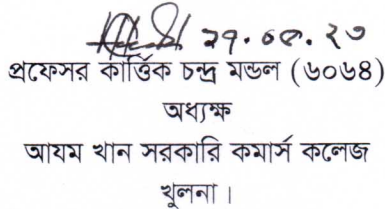 ২৭.০৮.২৩
প্রফেসর কার্ত্তিক চন্দ্র মন্ডল (৬০৬৪)
অধ্যক্ষ
আযম খান সরকারি কমার্স কলেজ
খুলনা।